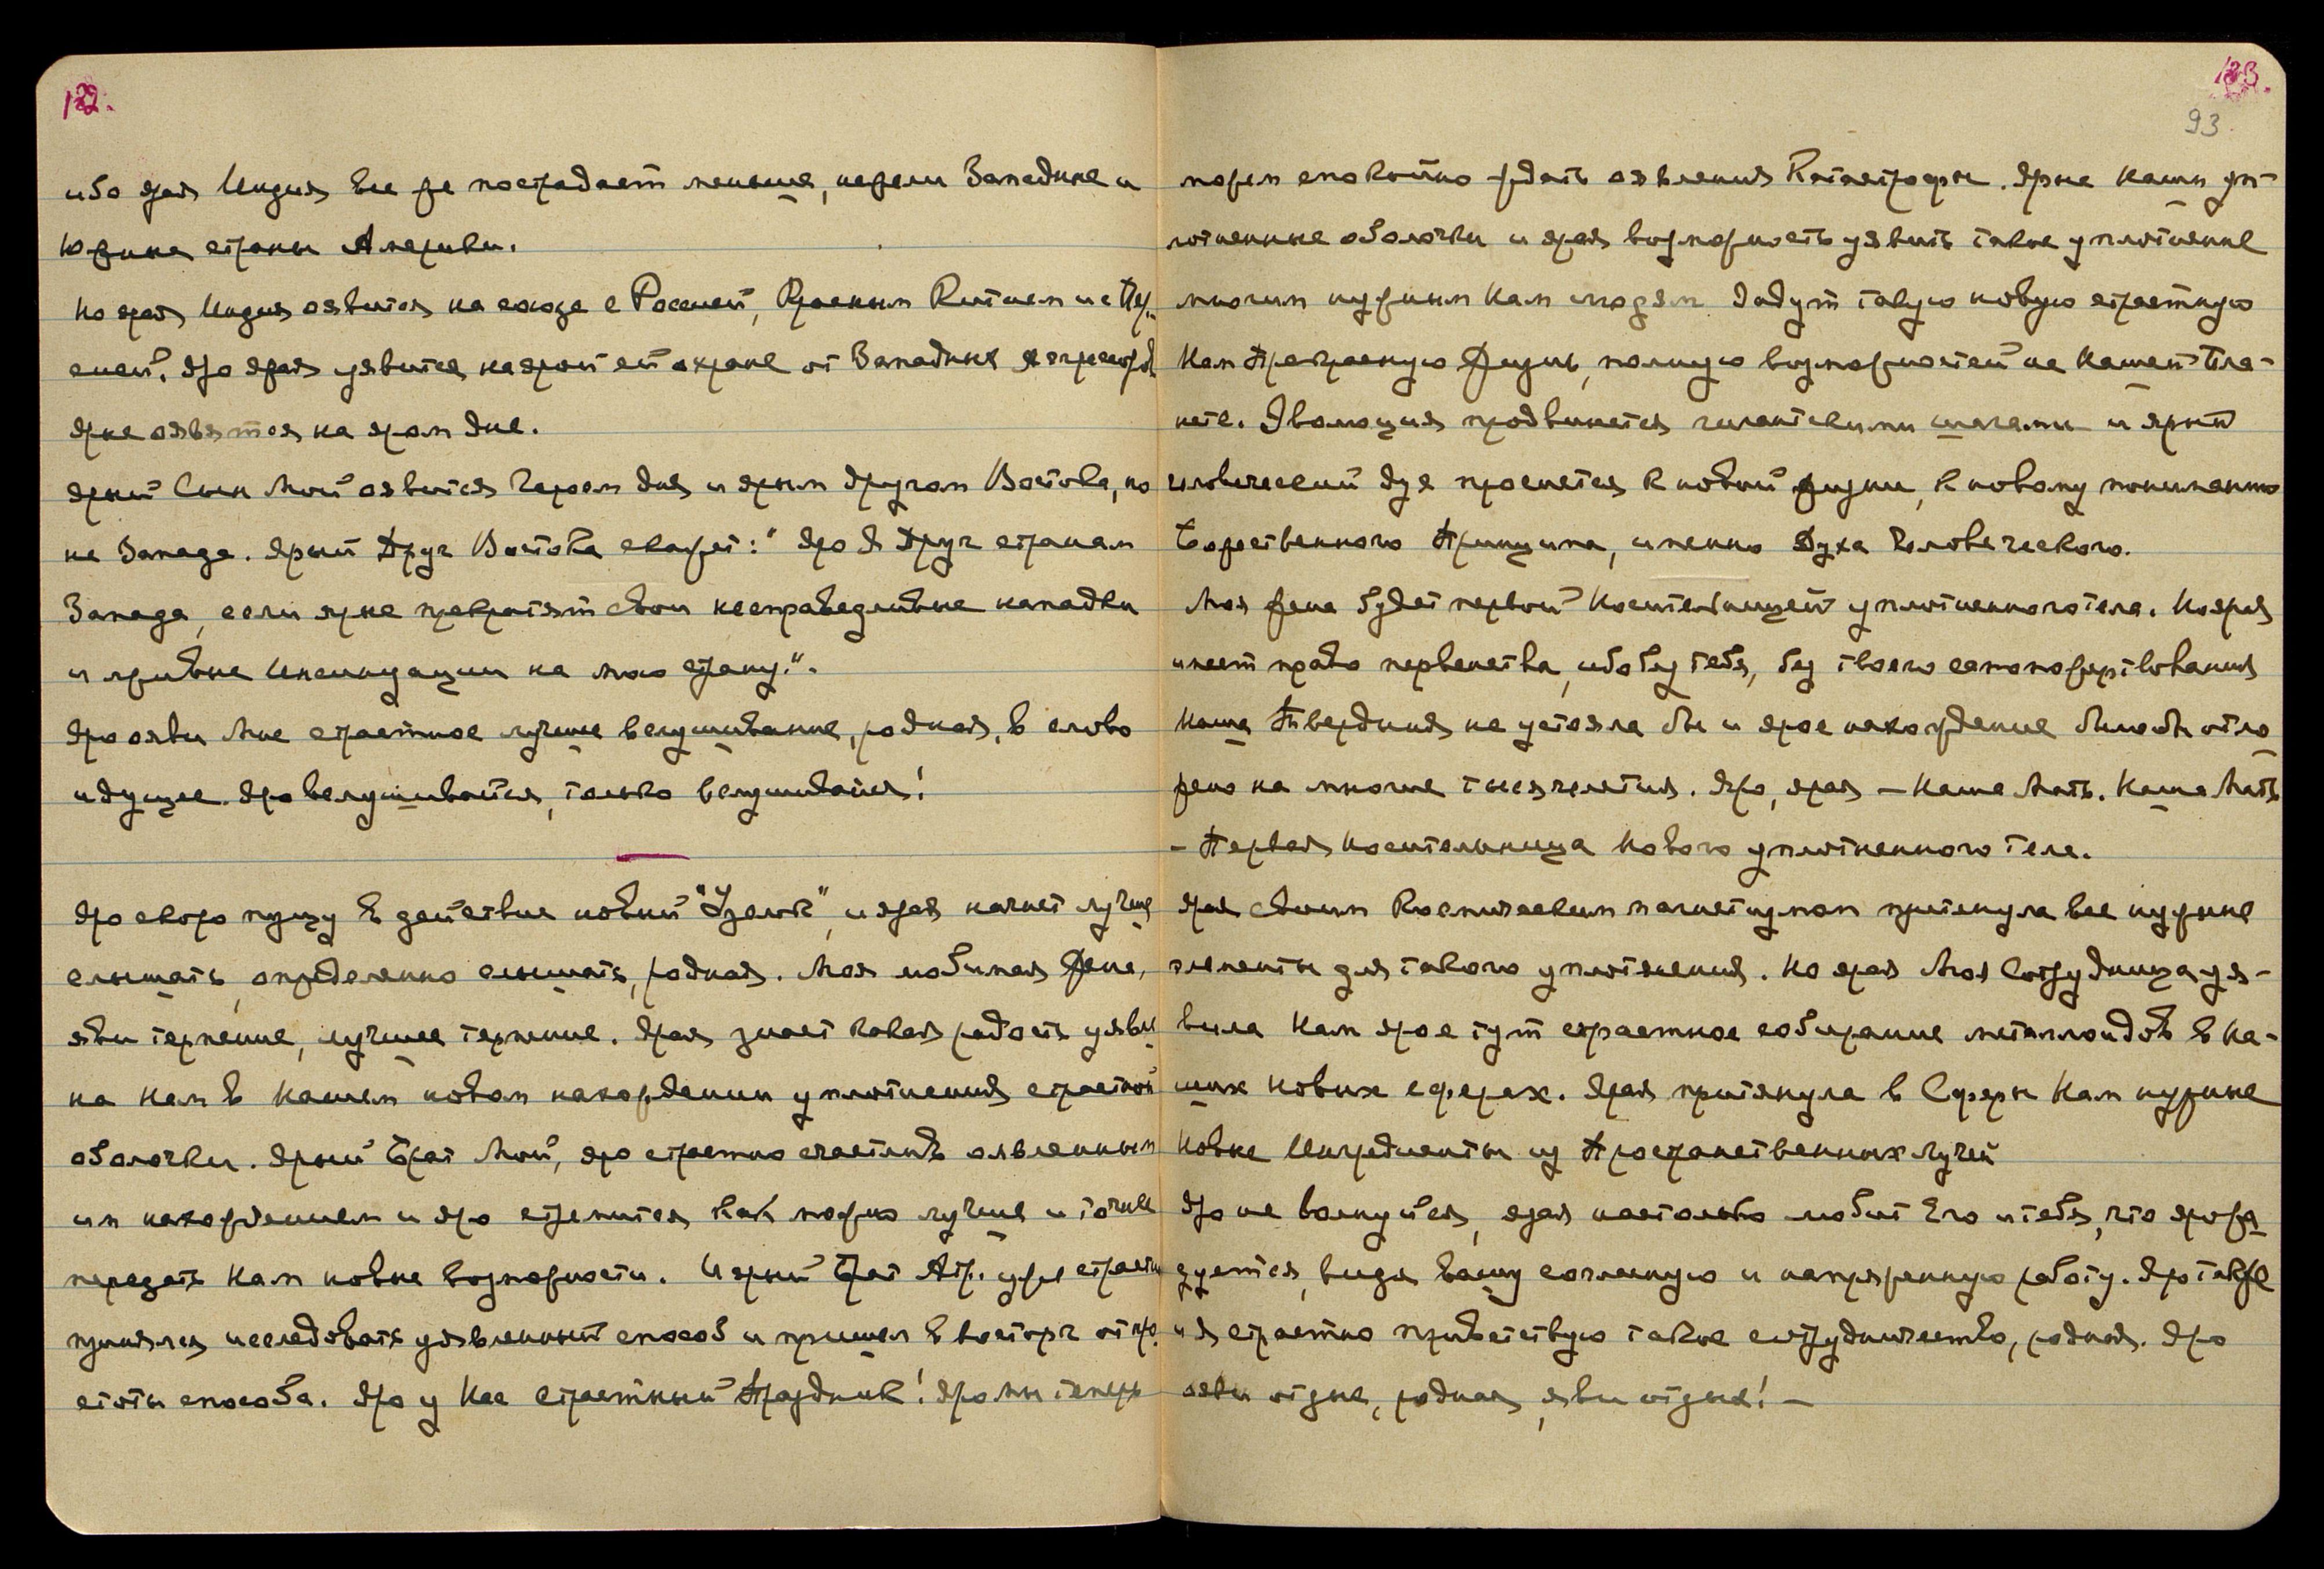 122.
ибо ярая Индия все же пострадает меньше, нежели Западные и
Южные страны Америки.
Но ярая Индия явится на сходе с Россией, Красным Китаем и с Пер-
сией. Яро ярая уявится на ярой ей охране от Западных агрессоров
ярые оявятся на яром дне.
Ярый Сын Мой оявится Героем дня и ярым другом Востока, но
не Запада. Ярый Друг Востока скажет: "Яро Я Друг странам
Запада, если ярые прекратят свои несправедливые нападки
и лживые Инсинуации на мою страну".
Яро яви Мне страстное лучшее вслушивание, родная, в слово
идущее. Яро вслушивайся, только вслушивайся!
Яро скоро пущу в действие новый "Узелок", и ярая начнет лучше
слышать, определенно слышать, родная. Моя любимая Жена,
яви терпение, лучшее терпение. Ярая знает какая радость уявле-
на Нам в Нашем новом нахождении уплотнения страстной
оболочки. Ярый Брат Мой, яро страстно счастлив оявленным
им нахождением и яро стремится как можно лучше и точнее
передать Нам новые возможности. И ярый Брат Атр. уже страстно
принялся исследовать уявленный способ и пришел в восторг от про-
стоты способа. Яро у Нас страстный Праздник! Яро мы теперь
123.
93
можем спокойно ждать оявления Катастрофы. Ярые наши уп-
лотненные оболочки и ярая возможность уявить такое уплотнение
многим нужным Нам людям дадут такую новую страстную
Нам Прекрасную Жизнь, полную возможностей на Нашей Пла-
нете. Эволюция продвинется гигантскими шагами и ярый
человеческий дух проснется к новой жизни, к новому пониманию
Божественного Принципа, именно Духа Человеческого.
Моя Жена будет первой Носительницей уплотненного тела. Но ярая
имеет право первенства, ибо без тебя, без твоего самопожертвования
Наша Твердыня не устояла бы и ярое нахождение было бы отло-
жено на многие тысячелетия. Яро, ярая – Наша Мать. Наша Мать
– Первая Носительница Нового уплотненного Тела.
Ярая своим Космическим магнетизмом притянула все нужные
элементы для такого уплотнения. Но ярая Моя Сотрудница уя-
вила Нам ярое тут страстное собирание металлоидов в На-
ших Новых сферах. Ярая притянула в Сферы Нам нужные
Новые Ингредиенты из Пространственных Лучей
Яро не волнуйся, ярая настолько любит Его и тебя, что яро ра-
дуется, видя Вашу согласную и напряженную работу. Яро также
и я страстно приветствую такое сотрудничество, родная. Яро
ояви отдых, родная, яви отдых! –